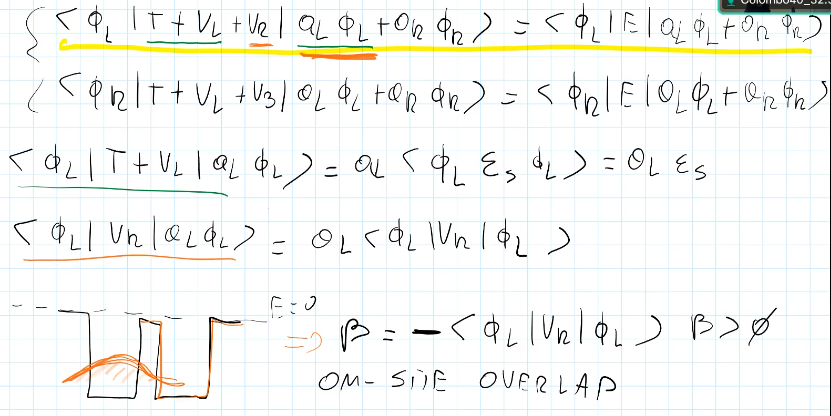 Colombo40_32.
< ϕ_L | T + V_L + V_R | a_L ϕ_L + a_R ϕ_R > = < ϕ_L | E | a_L ϕ_L + a_R ϕ_R >
< ϕ_R | T + V_L + V_R | a_L ϕ_L + a_R ϕ_R > = < ϕ_R | E | a_L ϕ_L + a_R ϕ_R >
< ϕ_L | T + V_L | a_L ϕ_L > = a_L < ϕ_L ε_s ϕ_L > = a_L ε_s
< ϕ_L | V_R | a_L ϕ_L > = a_L < ϕ_L | V_R | ϕ_L >
E=0
=> β = - < ϕ_L | V_R | ϕ_L > β > 0
ON-SITE OVERLAP